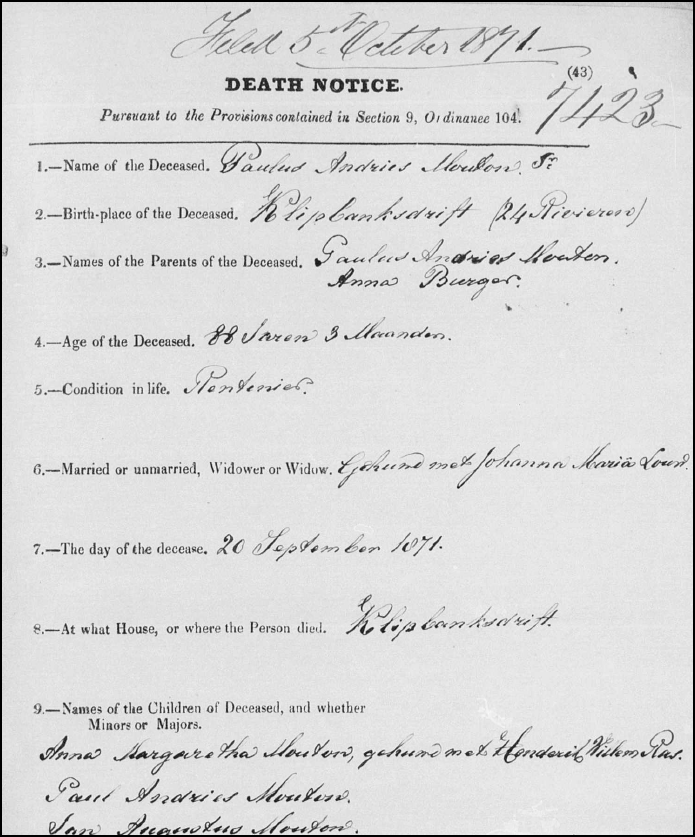 Filed 5th October 1871.
(43)
DEATH NOTICE.
7423
Pursuant to the Provisions contained in Section 9, Ordinance 104.
1.—Name of the Deceased. Paulus Andries Mouton. Sr
2.—Birth-place of the Deceased. Klipbanksdrift (24 Rivieren)
3.—Names of the Parents of the Deceased. Paulus Andries Mouton.
Anna Burger.
4.—Age of the Deceased. 88 Jaren 3 Maanden.
5.—Condition in life. Rentenier.
6.—Married or unmarried, Widower or Widow. Gehuwd met Johanna Maria Louw.
7.—The day of the decease. 20 September 1871.
8.—At what House, or where the Person died. Klipbanksdrift.
9.—Names of the Children of Deceased, and whether
Minors or Majors.
Anna Margaretha Mouton, gehuwd met Henderik Willem Ras.
Paul Andries Mouton.
Jan Augustus Mouton.